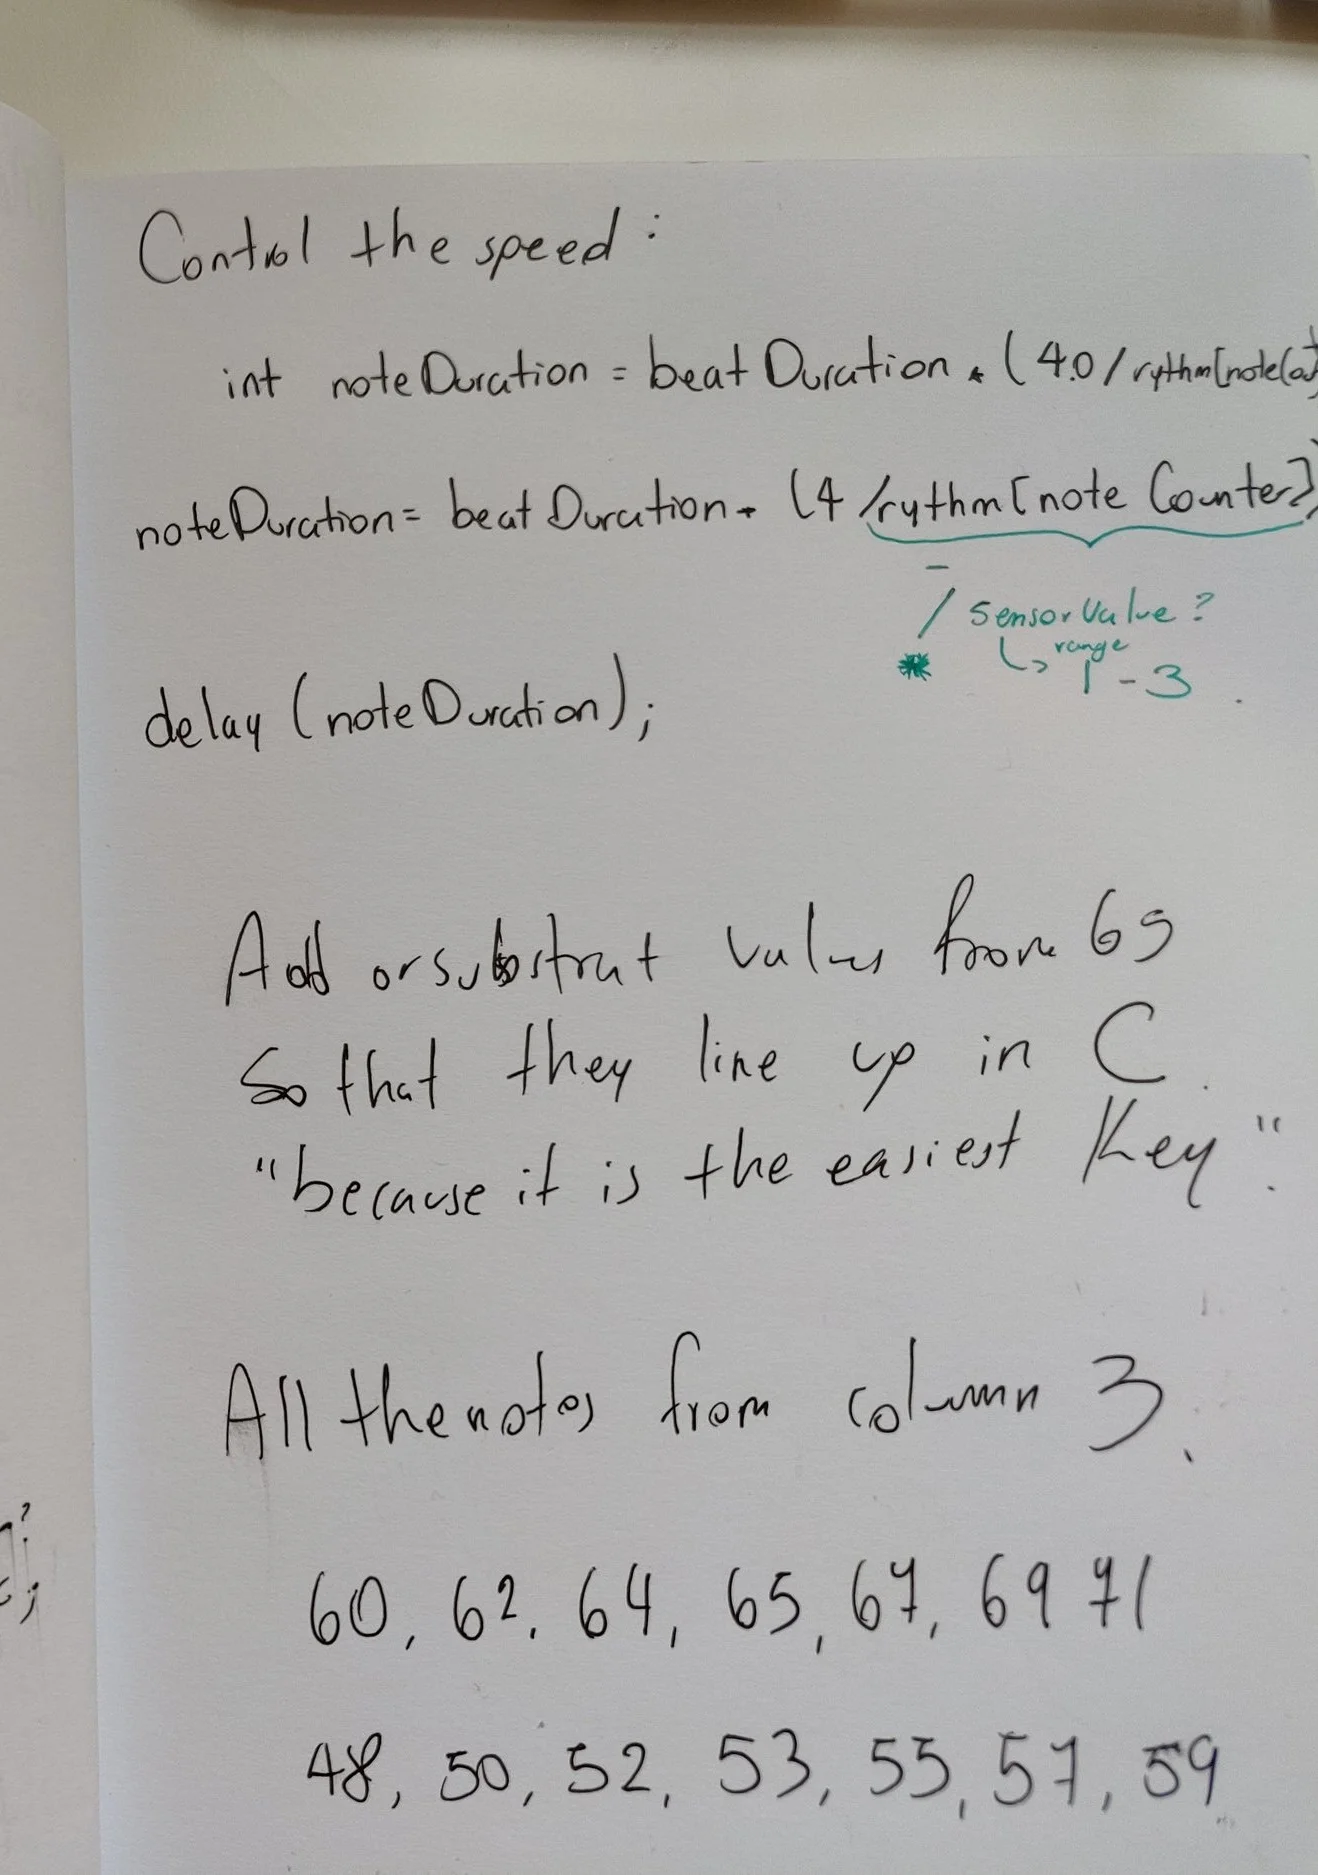 Control the speed :
int noteDuration = beatDuration * ( 4.0 / rythm[note
noteDuration = beatDuration * (4 /rythm[note Counter])
/ sensorValue ?
* ↳ range
1 - 3
delay (noteDuration);
Add or substrat values from 69
So that they line up in C
"because it is the easiest Key".
All the notes from column 3.
60, 62. 64, 65, 67, 69 71
48, 50, 52, 53, 55, 57, 59